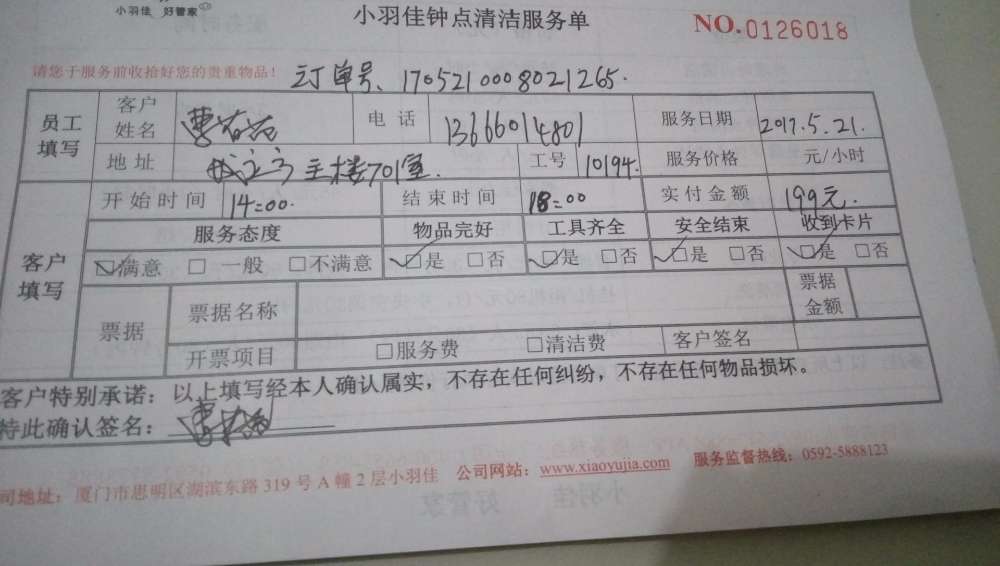 小羽佳 好管家
小羽佳钟点清洁服务单
NO.0126018
请您于服务前收拾好您的贵重物品!
订单号、1705210008021265.
员工填写 客户姓名 曹 电话 13666014801 服务日期 2017.5.21.
地址 主楼701室. 工号 10194. 服务价格 元/小时
客户填写 开始时间 14=00. 结束时间 18=00 实付金额 199元
服务态度 物品完好 工具齐全 安全结束 收到卡片
☑满意 □ 一般 □不满意 ☑是 □否 ☑是 □否 ☑是 □否 ☑是 □否
票据 票据名称 票据金额
开票项目 □服务费 □清洁费 客户签名
客户特别承诺：以上填写经本人确认属实，不存在任何纠纷，不存在任何物品损坏。
特此确认签名： 曹
司地址：厦门市思明区湖滨东路 319 号 A 幢 2 层小羽佳 公司网站：www.xiaoyujia.com 服务监督热线：0592-5888123